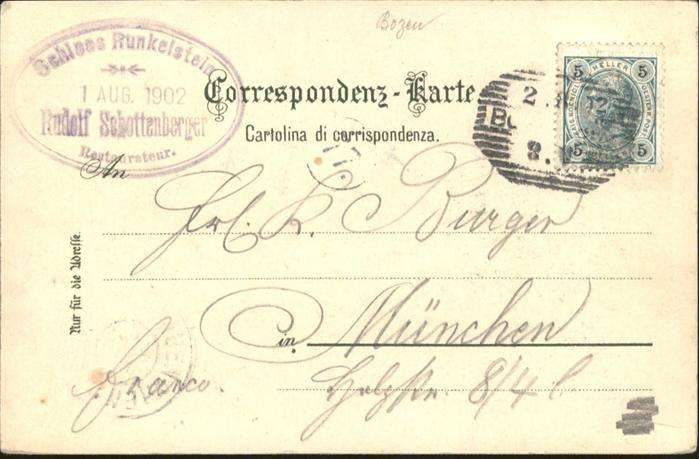 Bozen
Schloss Runkelstein
1 AUG. 1902
Rudolf Schottenberger
Restaurateur.
Correspondenz-Karte
Cartolina di corrispondenza.
5 HELLER 5
5 5
2. 8. 02
9.
17.
An
Frl. K. Burger
in München
Franco. Holzstr. 8/4 l
Nur für die Adresse.